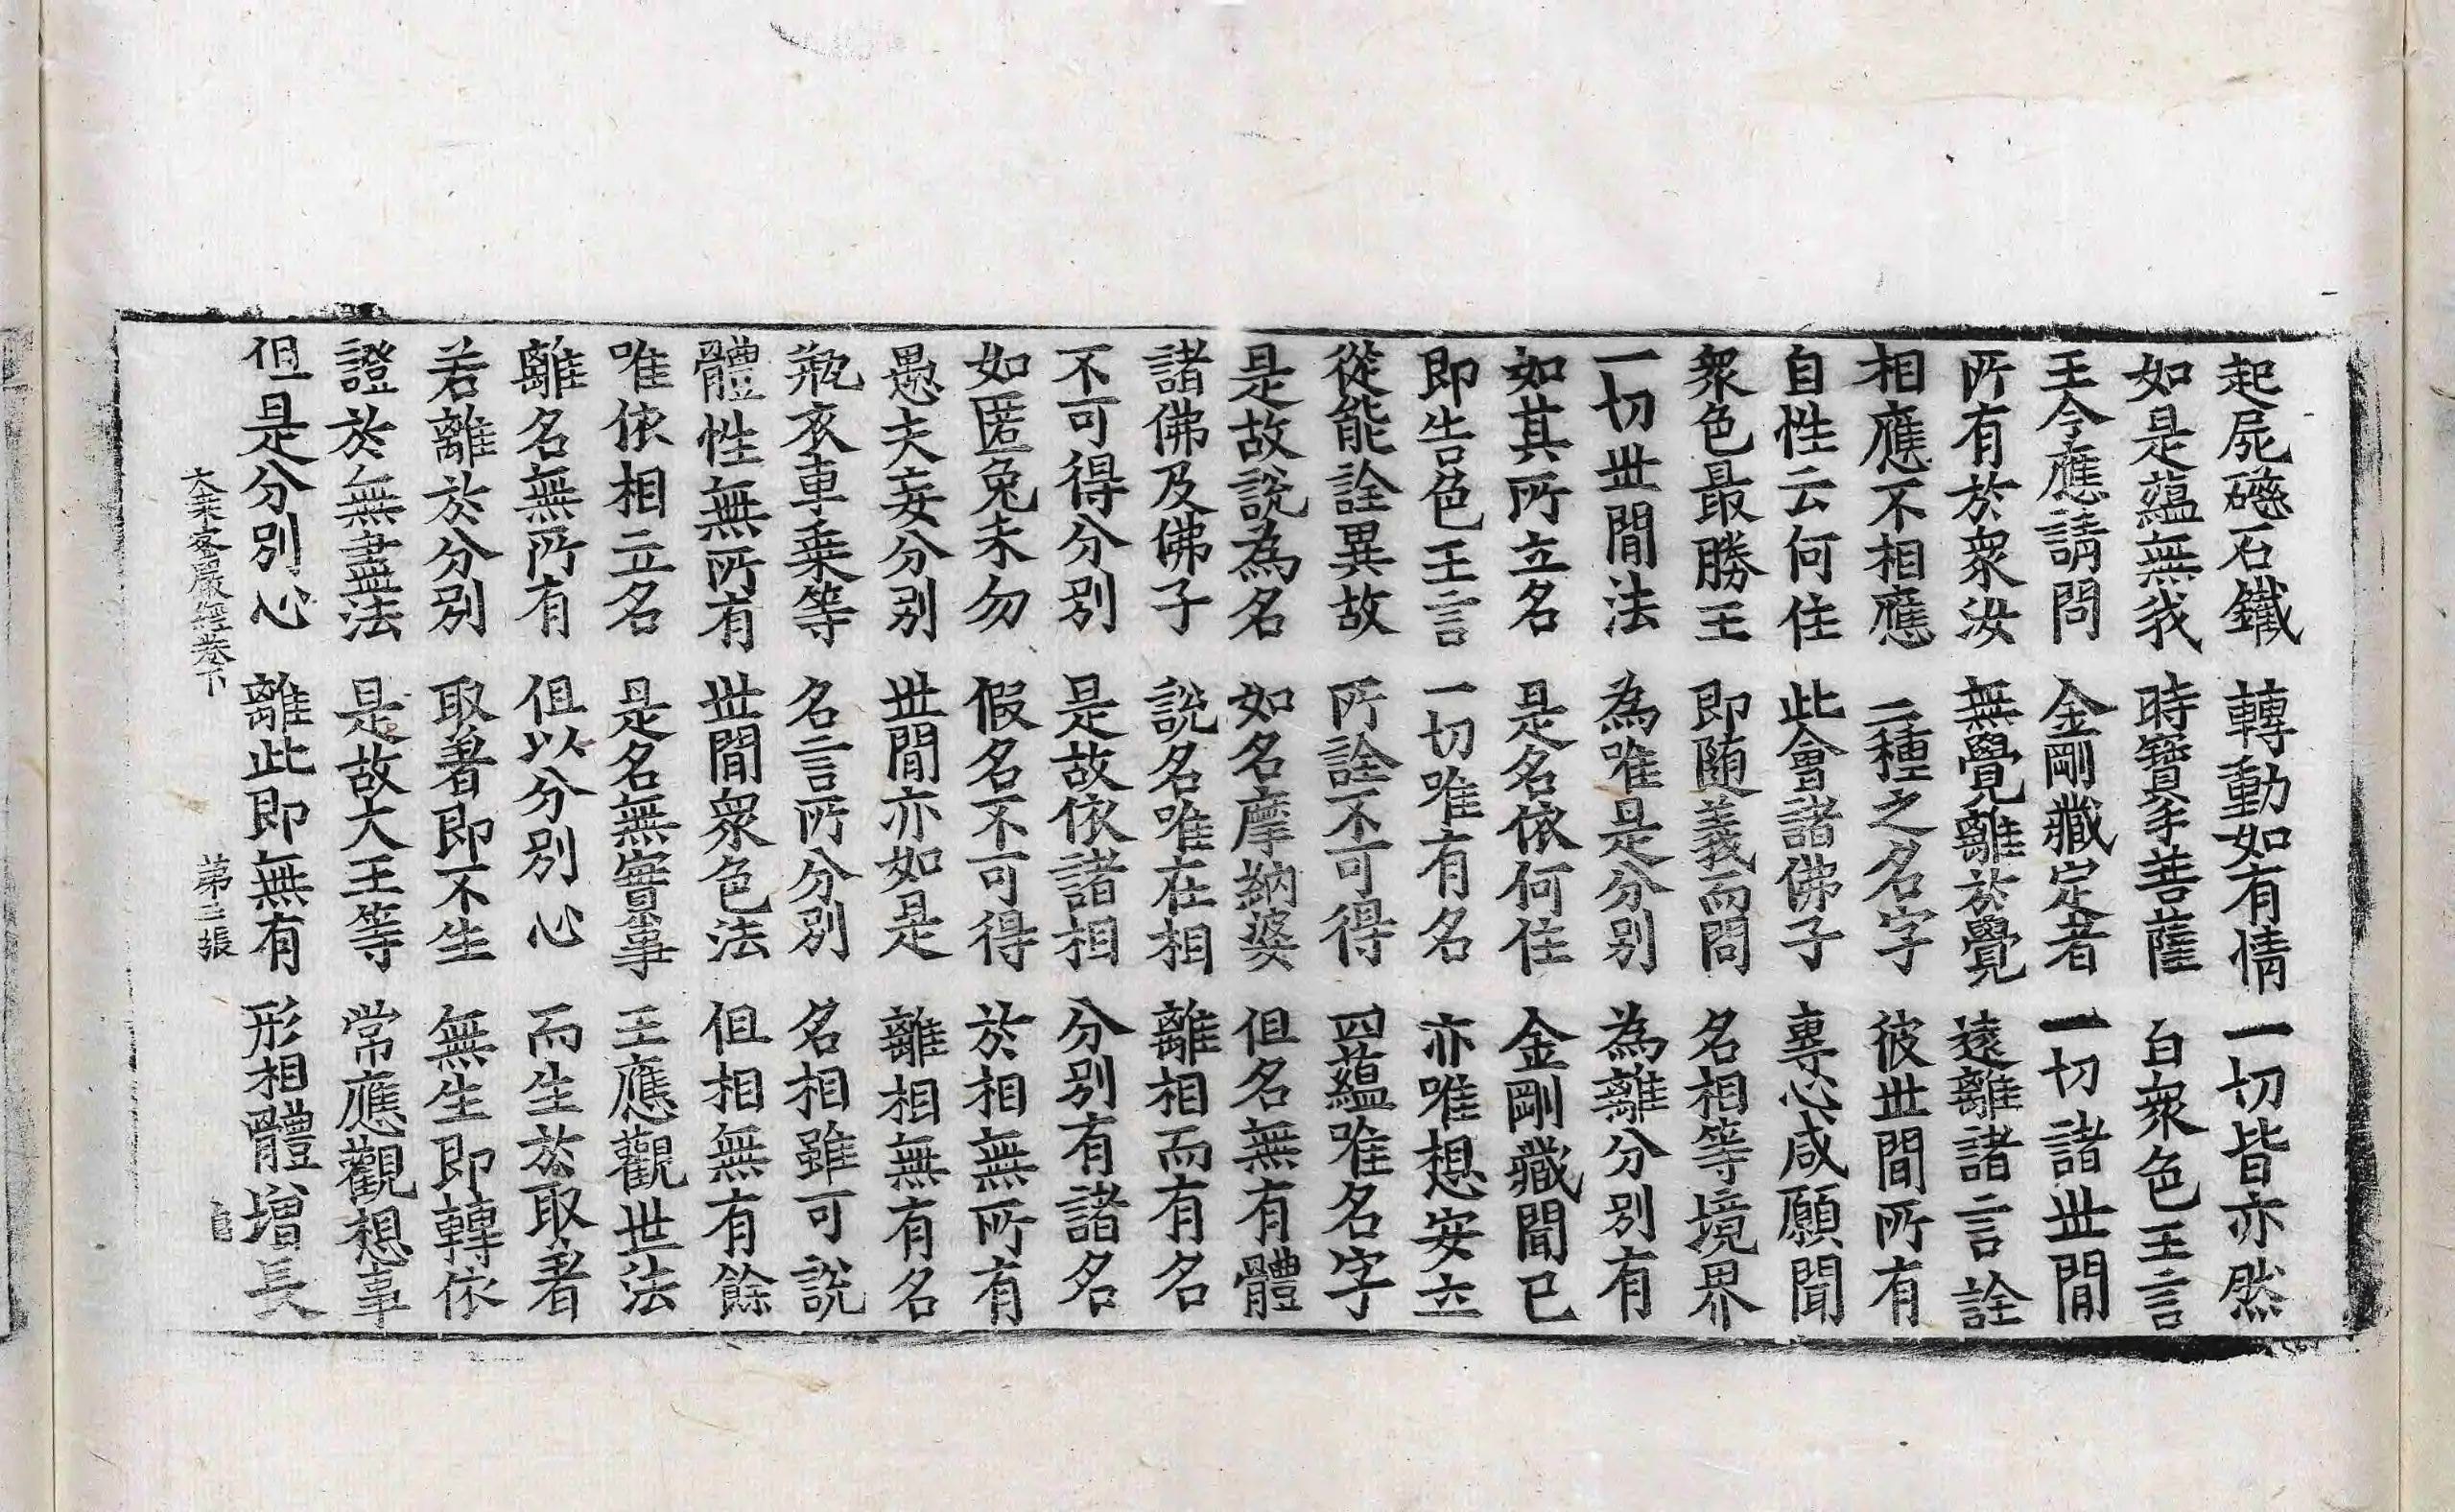 起屍礠石鐵　轉動如有情　一切皆亦然
如是蘊無我　時寶手菩薩　白衆色王言
王今應請問　金剛藏定者　一切諸世間
所有於衆汝　無覺離於覺　遠離諸言詮
相應不相應　二種之名字　彼世間所有
自性云何住　此會諸佛子　專心咸願聞
衆色最勝王　即随義而問　名相等境界
一切世間法　為唯是分别　為離分别有
如其所立名　是名依何住　金剛藏聞已
即告色王言　一切唯有名　亦唯想安立
從能詮異故　所詮不可得　四蘊唯名字
是故說為名　如名摩納婆　但名無有體
諸佛及佛子　說名唯在相　離相而有名
不可得分别　是故依諸相　分别有諸名
如匿兔未勿　假名不可得　於相無所有
愚夫妄分别　世間亦如是　離相無有名
瓶衣車乗等　名言所分别　名相雖可說
體性無所有　世間衆色法　但相無有餘
唯依相立名　是名無實事　王應觀世法
離名無所有　但以分别心　而生於取著
若離於分别　取著即不生　無生即轉依
證於無盡法　是故大王等　常應觀想事
但是分别心　離此即無有　形相體增長
大乗密嚴經卷下　第三張